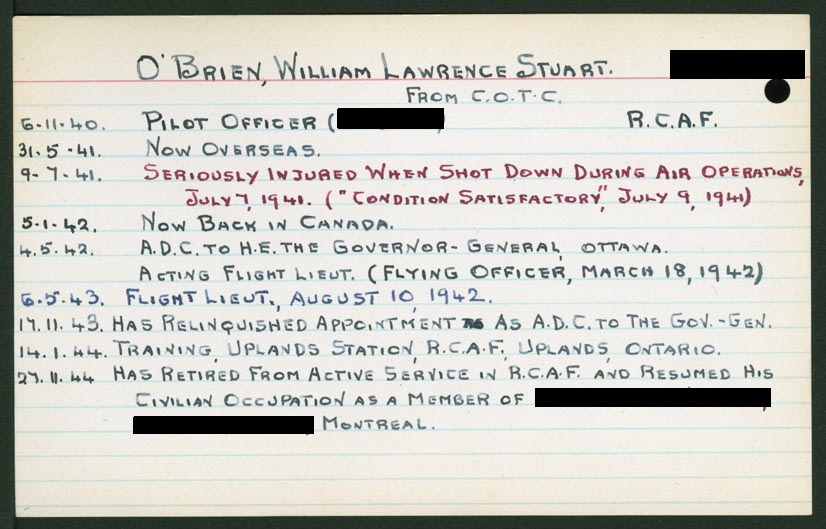 O'BRIEN, WILLIAM LAWRENCE STUART.
FROM C.O.T.C.
6-11-40. PILOT OFFICER ( ) R.C.A.F.
31.5.41. NOW OVERSEAS.
9-7-41. SERIOUSLY INJURED WHEN SHOT DOWN DURING AIR OPERATIONS,
JULY 7, 1941. ("CONDITION SATISFACTORY", JULY 9, 1941)
5-1-42. NOW BACK IN CANADA.
4.5.42. A.D.C. TO H.E. THE GOVERNOR-GENERAL, OTTAWA.
ACTING FLIGHT LIEUT. (FLYING OFFICER, MARCH 18, 1942)
6.5.43. FLIGHT LIEUT., AUGUST 10, 1942.
17.11.43. HAS RELINQUISHED APPOINTMENT AS A.D.C. TO THE GOV.-GEN.
14.1.44. TRAINING, UPLANDS STATION, R.C.A.F., UPLANDS, ONTARIO.
27.11.44 HAS RETIRED FROM ACTIVE SERVICE IN R.C.A.F. AND RESUMED HIS
CIVILIAN OCCUPATION AS A MEMBER OF
, MONTREAL.